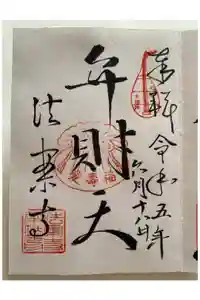 奉拝 令和五年
六月十六日
弁財天
法案寺